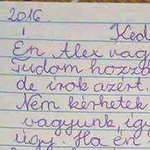 2016.
Ked
Én Alex vagy
Tudom hozzá
de írok azért.
Nem kérhetek
vagyunk, így
úgy. Ha én